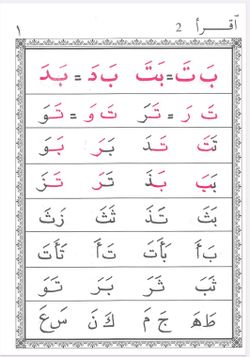 اَقـــرأ 2 ١
بَ تَ = بَتَ بَ دَ = بَدَ
تَ رَ = تَرَ تَ وَ = تَوَ
تَتَ تَدَ بَرَ بَوَ
بَبَ بَذَ تَرَ تَزَ
بَثَ تَذَ ثَثَ زَثَ
بَأَ بَأَتَ تَأَ تَأَتَ
ثَبَ ثَرَ بَرَ تَوَ
طَهَ جَ مَ كَ نَ سَ عَ